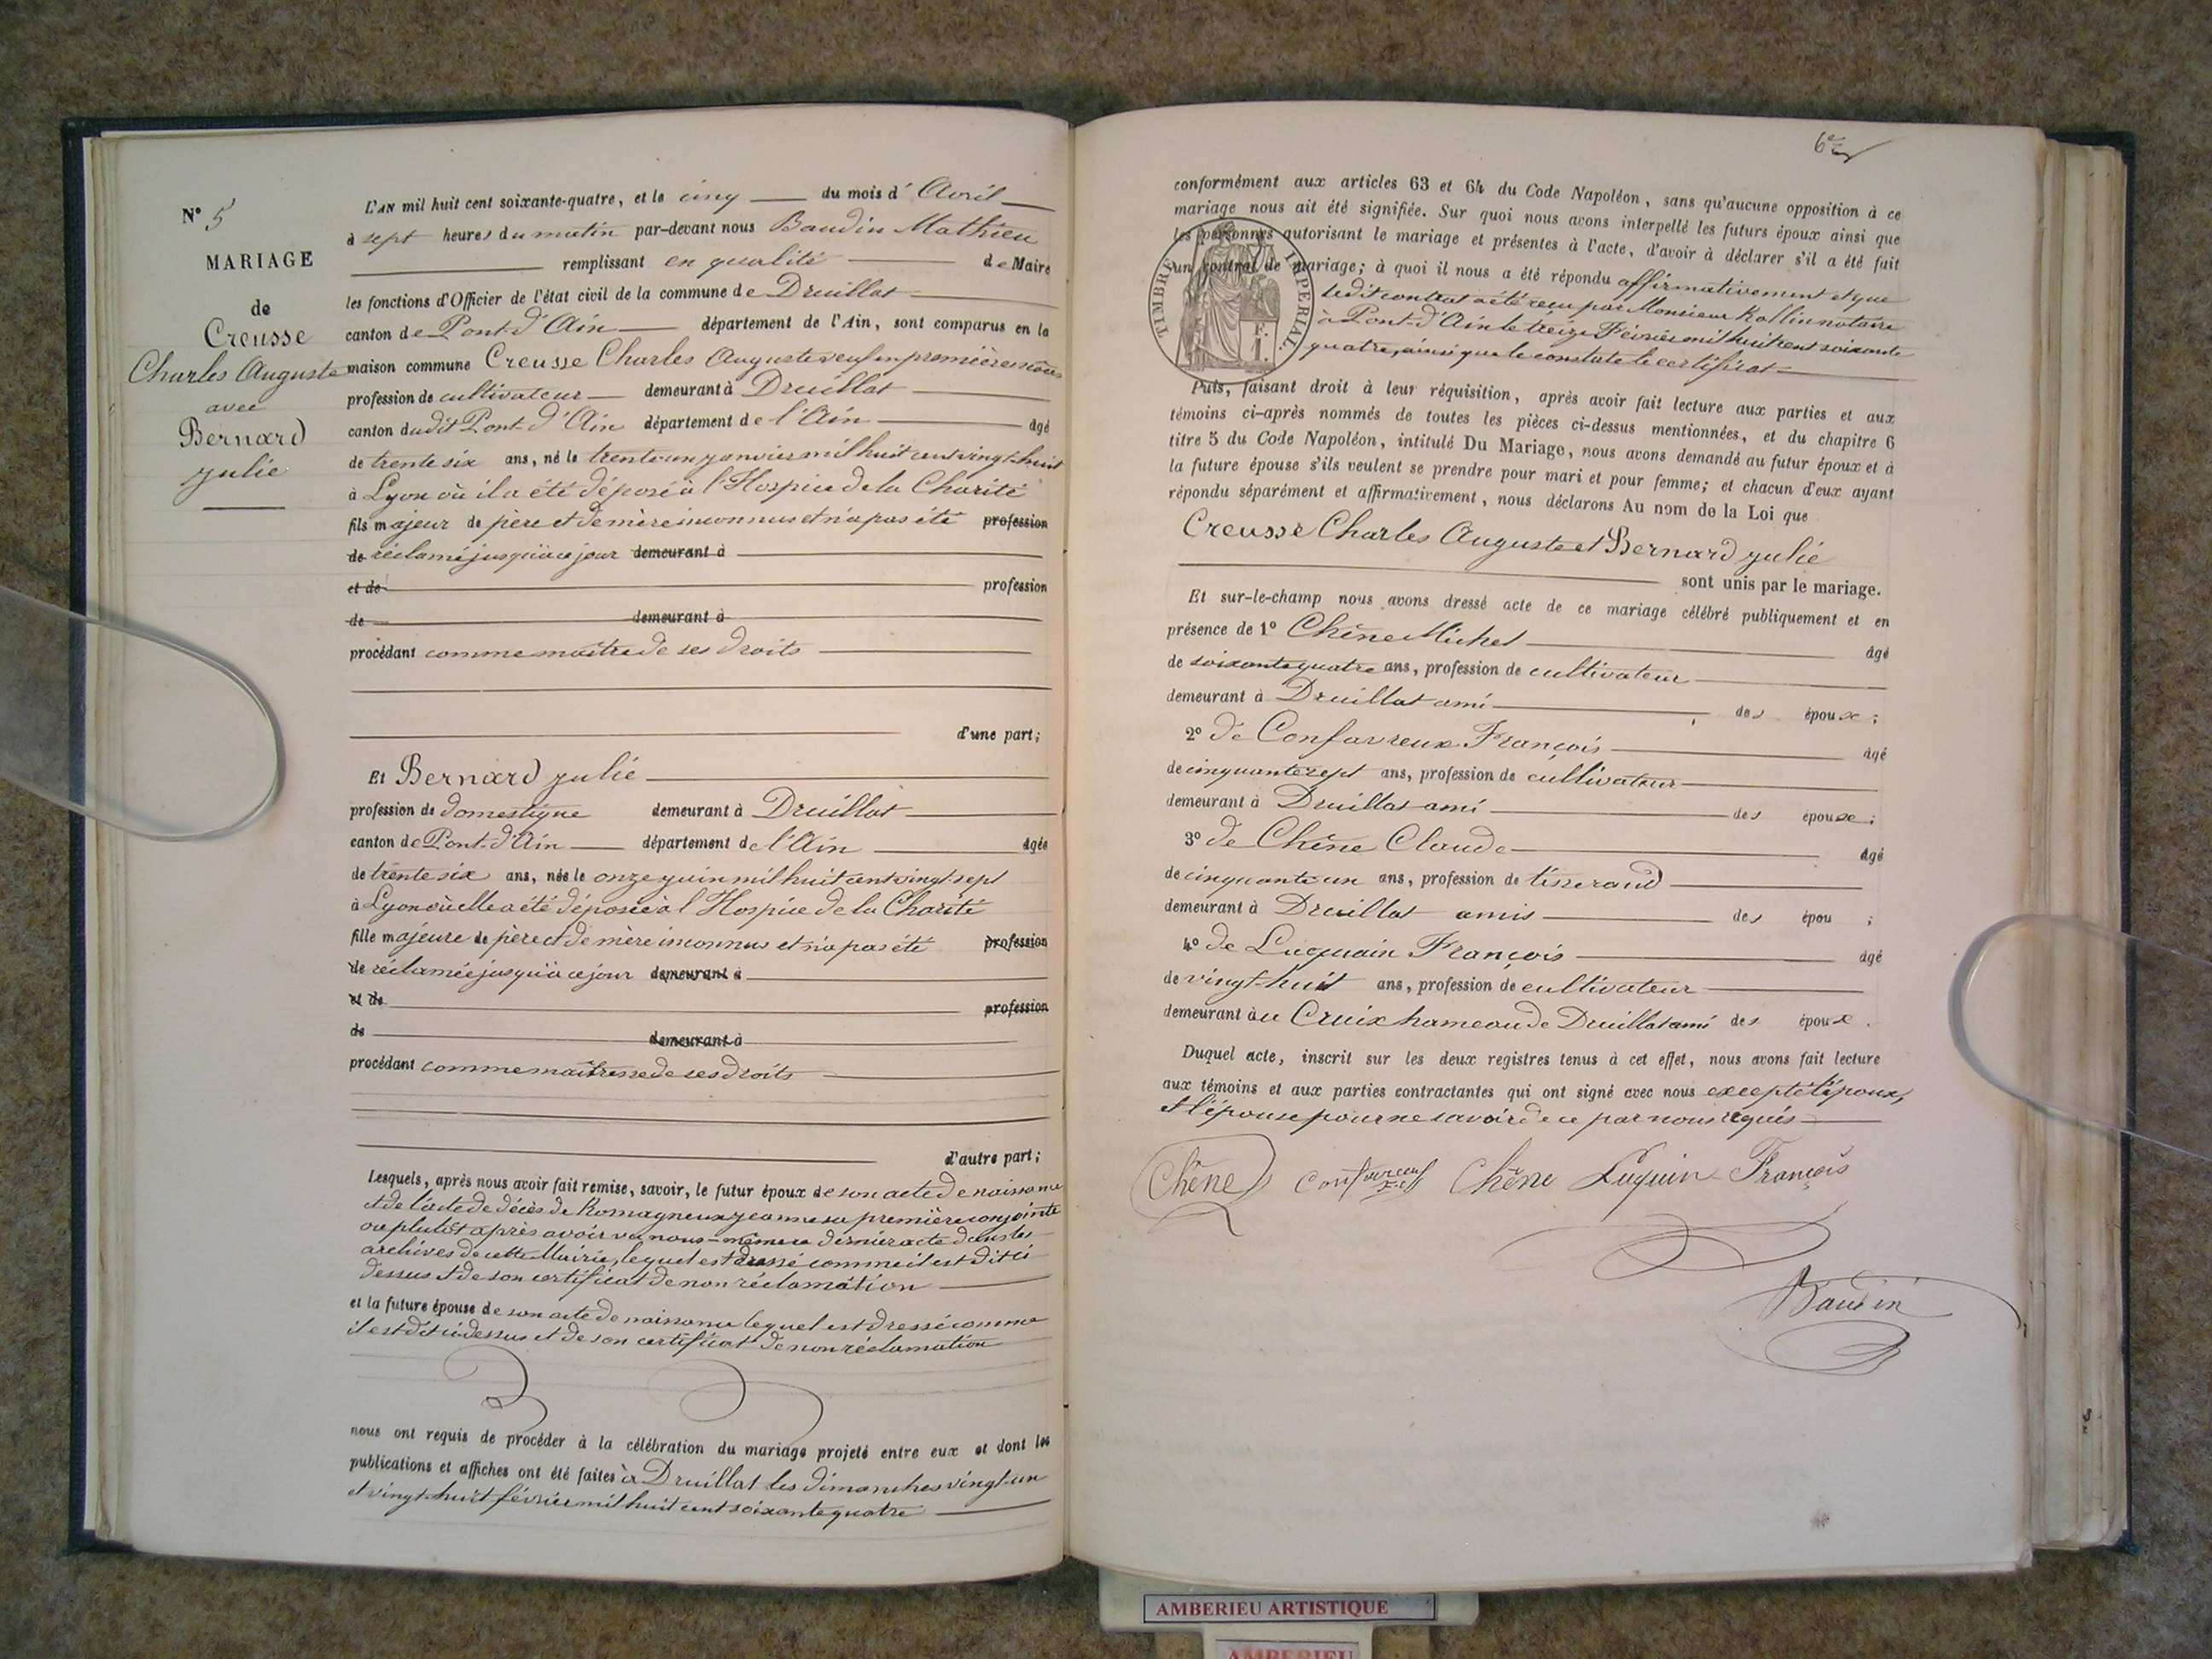 N° 5
MARIAGE
de
Creusse
Charles Auguste
avec
Bernard
julie
L'AN mil huit cent soixante-quatre, et le cinq du mois d'Avril
à sept heures du matin par-devant nous Baudin Mathieu
remplissant en qualité de Maire
les fonctions d'Officier de l'état civil de la commune de Druillat
canton de Pont-d'Ain département de l'Ain, sont comparus en la
maison commune Creusse Charles Auguste veuf en première noces
profession de cultivateur demeurant à Druillat
canton dudit Pont-d'Ain département de l'Ain âgé
de trente six ans, né le trente un janvier mil huit cent vingt-huit
à Lyon où il a été déposé à l'Hospice de la Charité
fils majeur de père et de mère inconnus et n'a pas été profession
de réclamé jusqu'à ce jour demeurant à
et de profession
de demeurant à
procédant comme maître de ses droits
d'une part;
Et Bernard julie
profession de domestique demeurant à Druillat
canton de Pont-d'Ain département de l'Ain âgée
de trente six ans, née le onze juin mil huit cent vingt-sept
à Lyon où elle a été déposée à l'Hospice de la Charité
fille majeure de père et de mère inconnus et n'a pas été profession
de réclamée jusqu'à ce jour demeurant à
et de profession
de demeurant à
procédant comme maîtresse de ses droits
d'autre part;
Lesquels, après nous avoir fait remise, savoir, le futur époux de son acte de naissance
et de l'acte de décès de Romagneux jeanne sa première conjointe
ou plutôt après avoir vu nous-même ce dernier acte dans les
archives de cette Mairie, lequel est dressé comme il est dit ci
dessus et de son certificat de non réclamation
et la future épouse de son acte de naissance lequel est dressé comme
il est dit ci-dessus et de son certificat de non réclamation
nous ont requis de procéder à la célébration du mariage projeté entre eux et dont les
publications et affiches ont été faites à Druillat les dimanches vingt-un
et vingt-huit février mil huit cent soixante quatre
6e
conformément aux articles 63 et 64 du Code Napoléon, sans qu'aucune opposition à ce
mariage nous ait été signifiée. Sur quoi nous avons interpellé les futurs époux ainsi que
les personnes autorisant le mariage et présentes à l'acte, d'avoir à déclarer s'il a été fait
un contrat de mariage; à quoi il nous a été répondu affirmativement et que
ledit contrat a été reçu par Monsieur Rollin notaire
à Pont-d'Ain le treize Février mil huit cent soixante
quatre, ainsi que le constate le certificat
TIMBRE IMPERIAL
Puis, faisant droit à leur réquisition, après avoir fait lecture aux parties et aux
témoins ci-après nommés de toutes les pièces ci-dessus mentionnées, et du chapitre 6
titre 5 du Code Napoléon, intitulé Du Mariage, nous avons demandé au futur époux et à
la future épouse s'ils veulent se prendre pour mari et pour femme; et chacun d'eux ayant
répondu séparément et affirmativement, nous déclarons Au nom de la Loi que
Creusse Charles Auguste et Bernard julie
sont unis par le mariage.
Et sur-le-champ nous avons dressé acte de ce mariage célébré publiquement et en
présence de 1° Chêne Michel âgé
de soixante quatre ans, profession de cultivateur
demeurant à Druillat ami des époux;
2° de Confavreux François âgé
de cinquante sept ans, profession de cultivateur
demeurant à Druillat ami des époux;
3° de Chêne Claude âgé
de cinquante un ans, profession de tisserand
demeurant à Druillat amis des épou ;
4° de Luquain François âgé
de vingt-huit ans, profession de cultivateur
demeurant au Cruix hameau de Druillat ami des époux.
Duquel acte, inscrit sur les deux registres tenus à cet effet, nous avons fait lecture
aux témoins et aux parties contractantes qui ont signé avec nous excepté l'époux,
et l'épouse pour ne savoir de ce par nous requis
Chêne Confavreux Chêne Luquin François
Baudin
AMBERIEU ARTISTIQUE
AMBERIEU